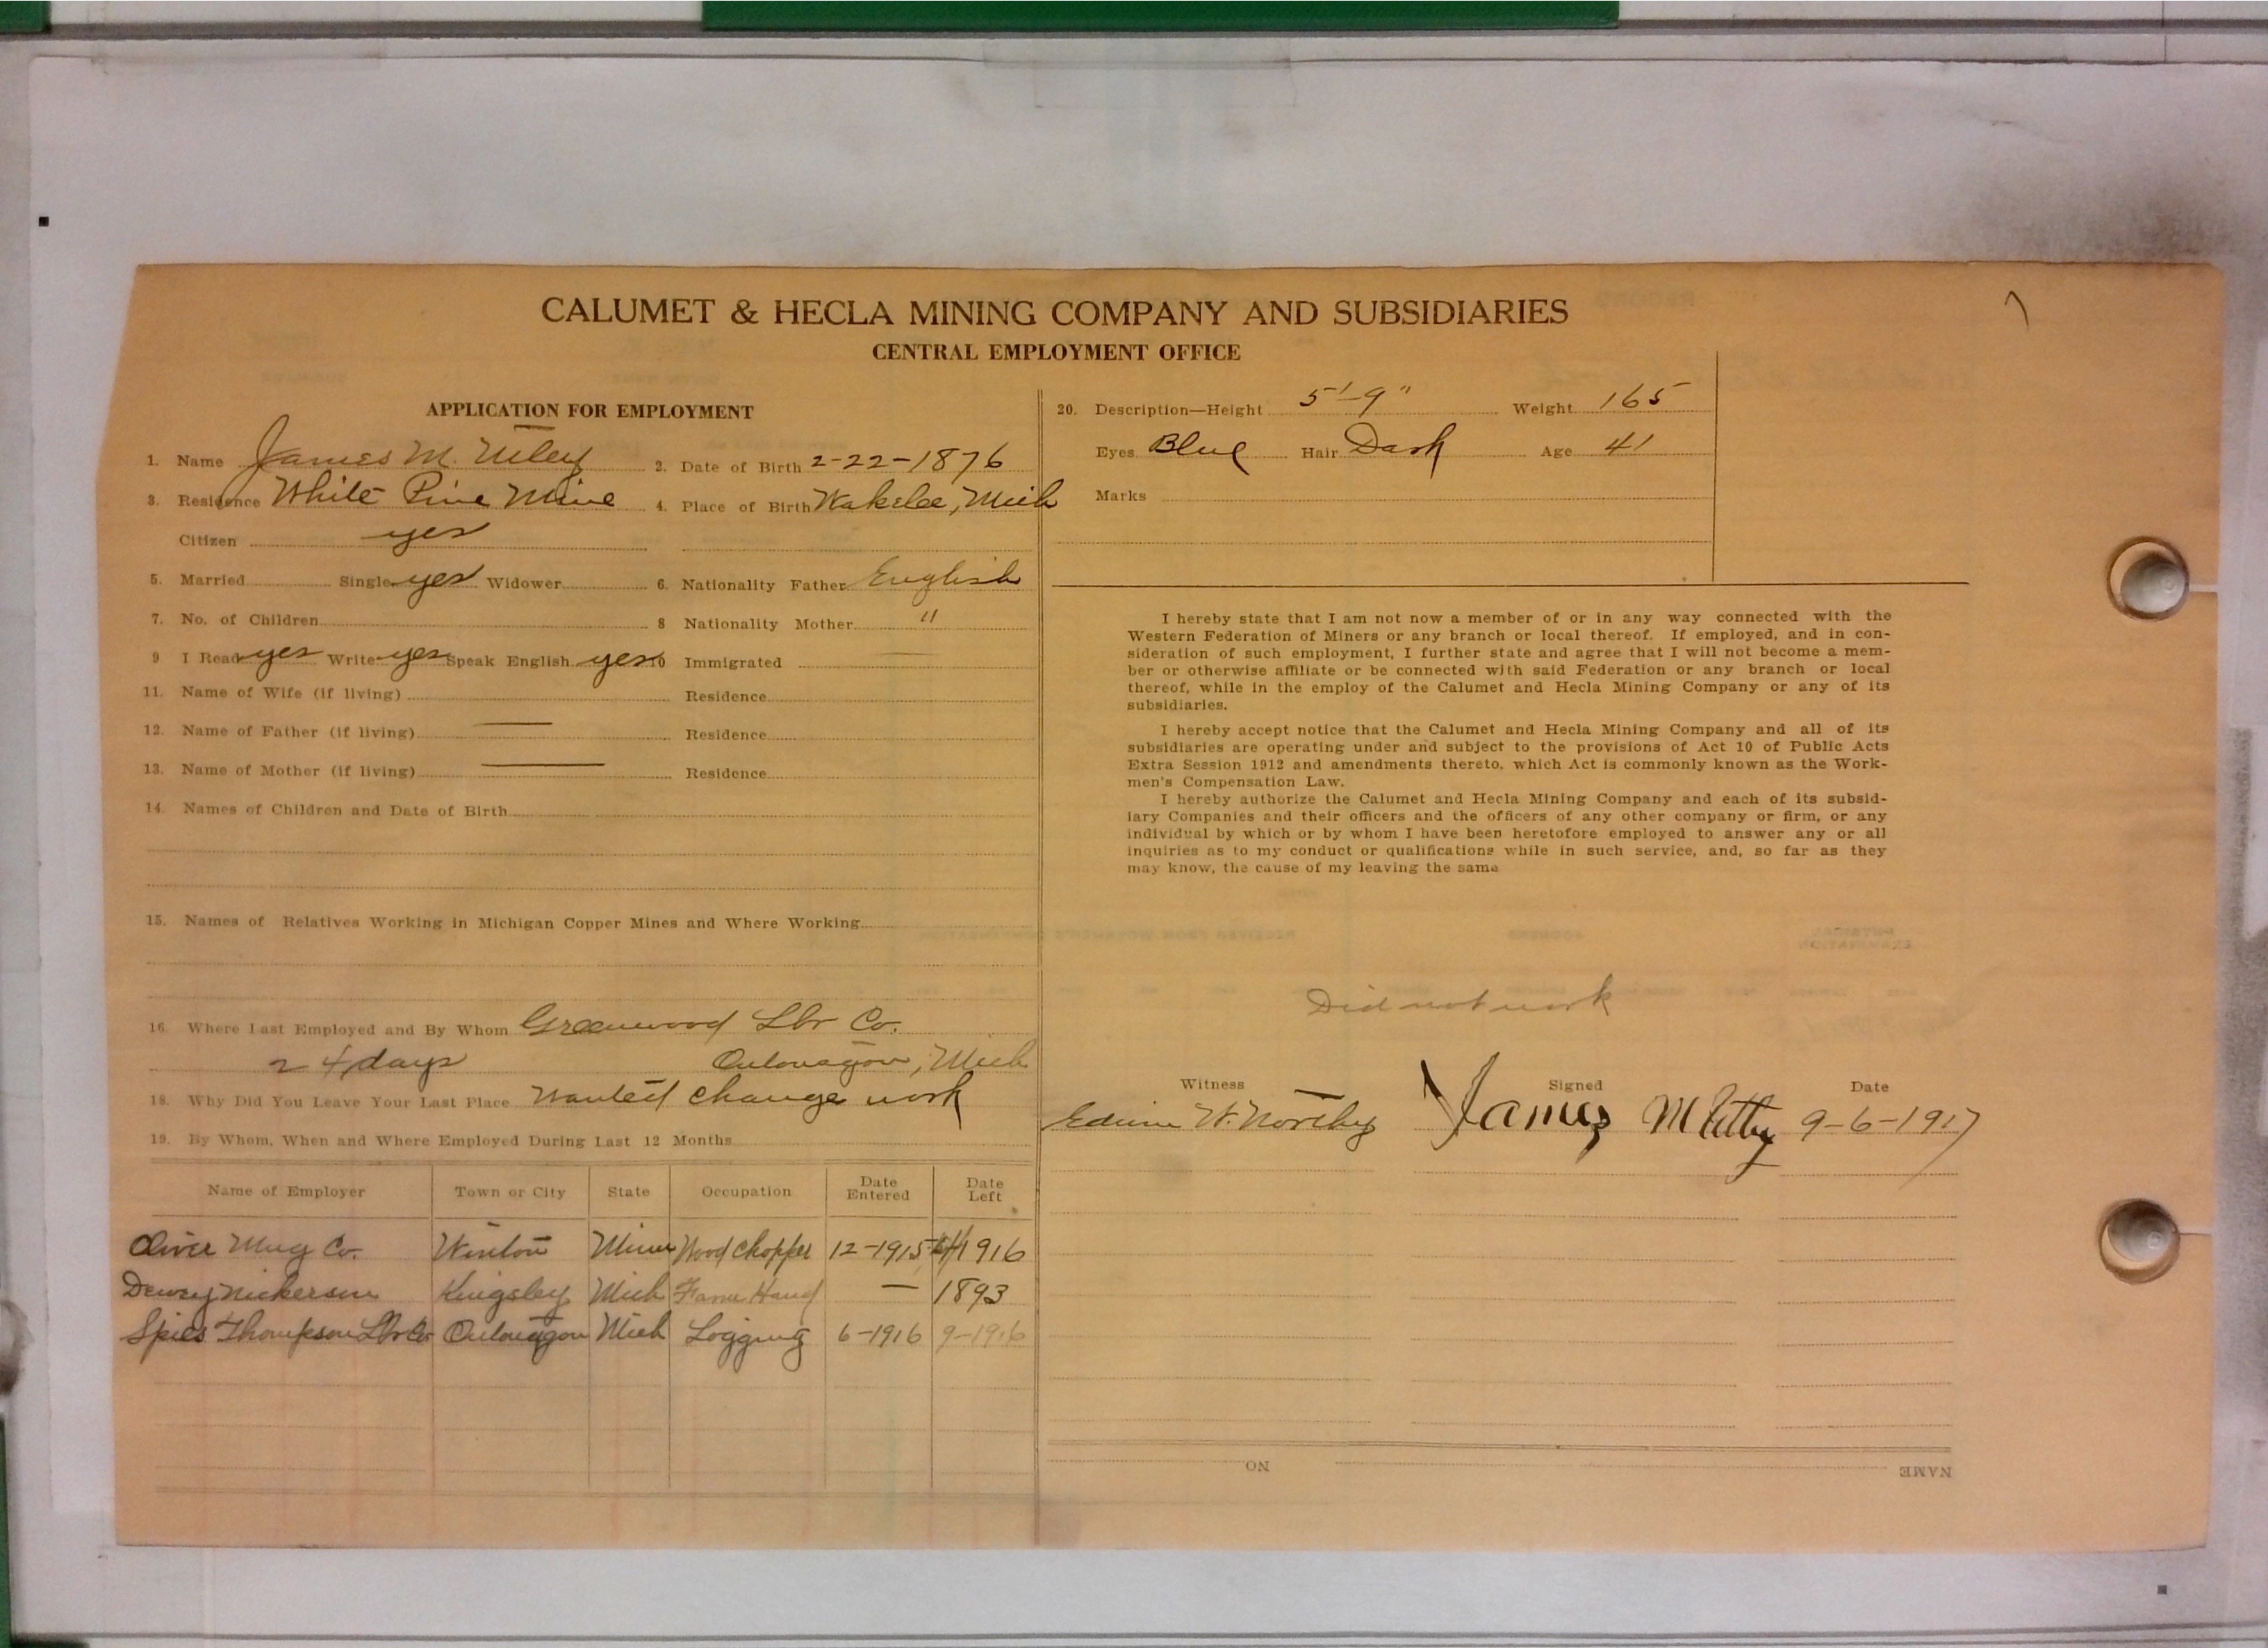 CALUMET & HECLA MINING COMPANY AND SUBSIDIARIES
CENTRAL EMPLOYMENT OFFICE
APPLICATION FOR EMPLOYMENT
1. Name James M. Utley 2. Date of Birth 2-22-1876
3. Residence White Pine Mine 4. Place of Birth Wakelee, Mich
Citizen yes
5. Married Single yes Widower 6. Nationality Father English
7. No. of Children 8 Nationality Mother "
9 I Read yes Write yes Speak English yes 10 Immigrated —
11. Name of Wife (if living) Residence
12. Name of Father (if living) — Residence
13. Name of Mother (if living) — Residence
14. Names of Children and Date of Birth
15. Names of Relatives Working in Michigan Copper Mines and Where Working
16. Where Last Employed and By Whom Greenwood Lbr Co.
24 days Ontonagon, Mich
18. Why Did You Leave Your Last Place Wanted change work
19. By Whom, When and Where Employed During Last 12 Months
Name of Employer Town or City State Occupation Date Entered Date Left
Oliver Mng Co. Winton Minn Wood Chopper 12-1915 1916
Dewey Nickerson Kingsley Mich Farm Hand — 1893
Spies Thompson Lbr Co Ontonagon Mich Logging 6-1916 9-1916
20. Description—Height 5'-9" Weight 165
Eyes Blue Hair Dark Age 41
Marks
I hereby state that I am not now a member of or in any way connected with the
Western Federation of Miners or any branch or local thereof. If employed, and in con-
sideration of such employment, I further state and agree that I will not become a mem-
ber or otherwise affiliate or be connected with said Federation or any branch or local
thereof, while in the employ of the Calumet and Hecla Mining Company or any of its
subsidiaries.
I hereby accept notice that the Calumet and Hecla Mining Company and all of its
subsidiaries are operating under and subject to the provisions of Act 10 of Public Acts
Extra Session 1912 and amendments thereto, which Act is commonly known as the Work-
men's Compensation Law.
I hereby authorize the Calumet and Hecla Mining Company and each of its subsid-
iary Companies and their officers and the officers of any other company or firm, or any
individual by which or by whom I have been heretofore employed to answer any or all
inquiries as to my conduct or qualifications while in such service, and, so far as they
may know, the cause of my leaving the same
Did not work
Witness Signed Date
Edwin W. Northey James M Utley 9-6-1917
NO. NAME